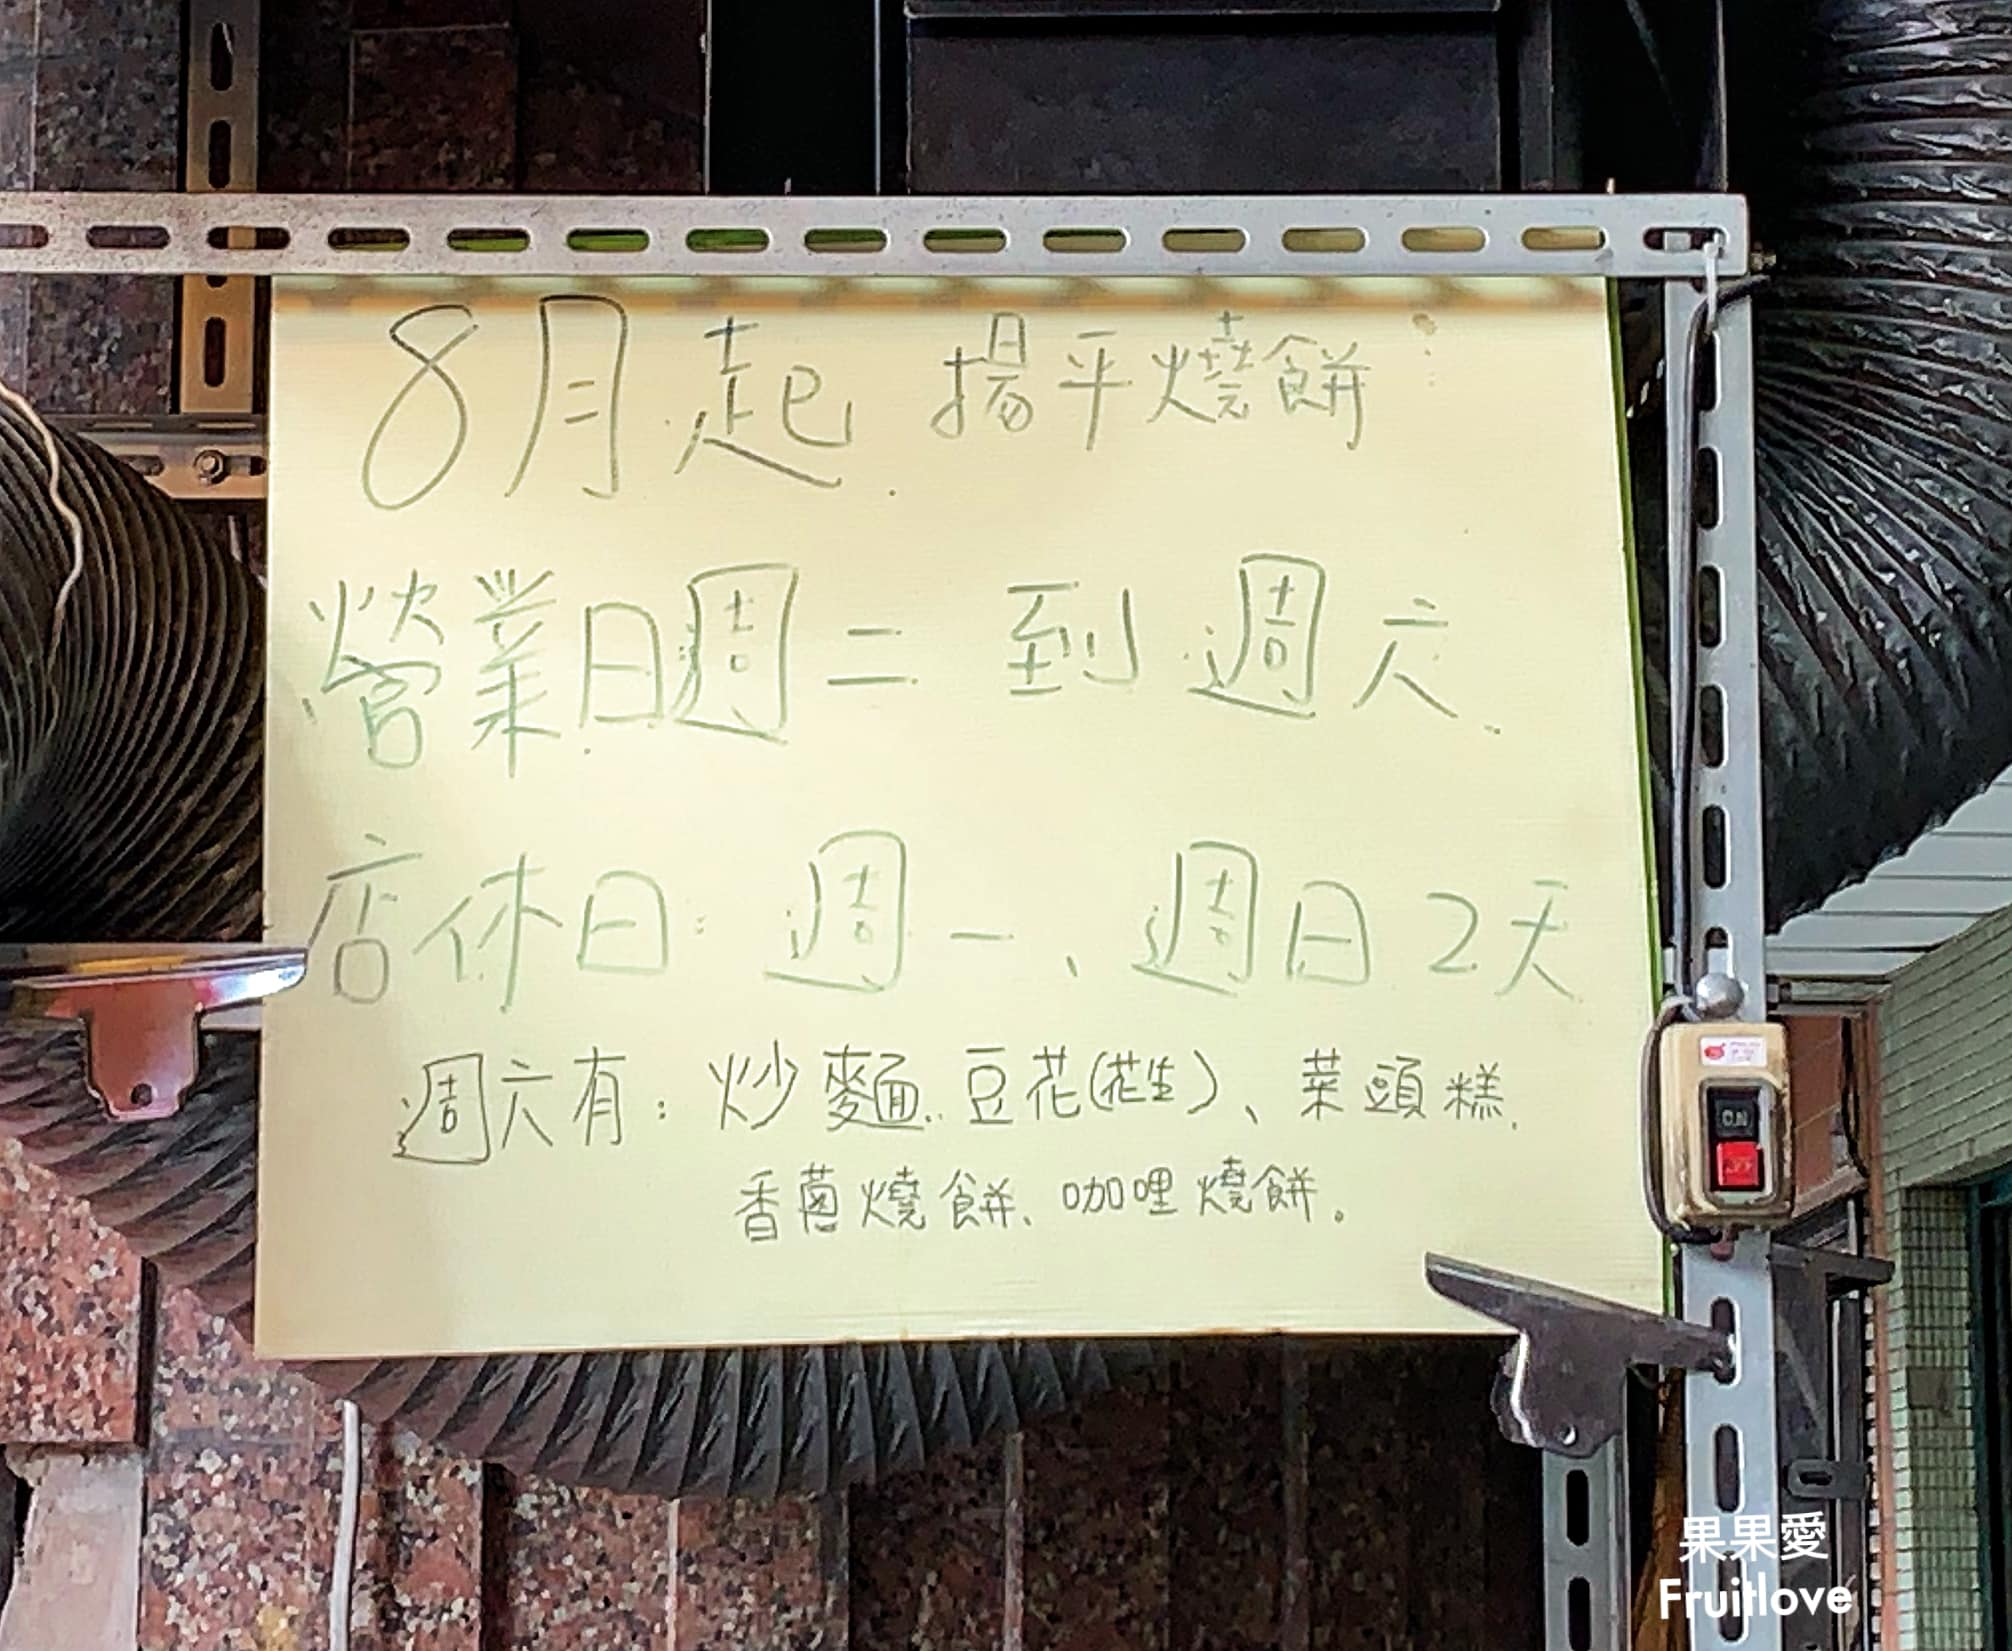 8月起 揚平燒餅：
營業日週二 到 週六.
店休日：週一、週日2天
週六有：炒麵、豆花(花生)、菜頭糕、
香蔥燒餅、咖哩燒餅。
ON
果果愛
Fruitlove